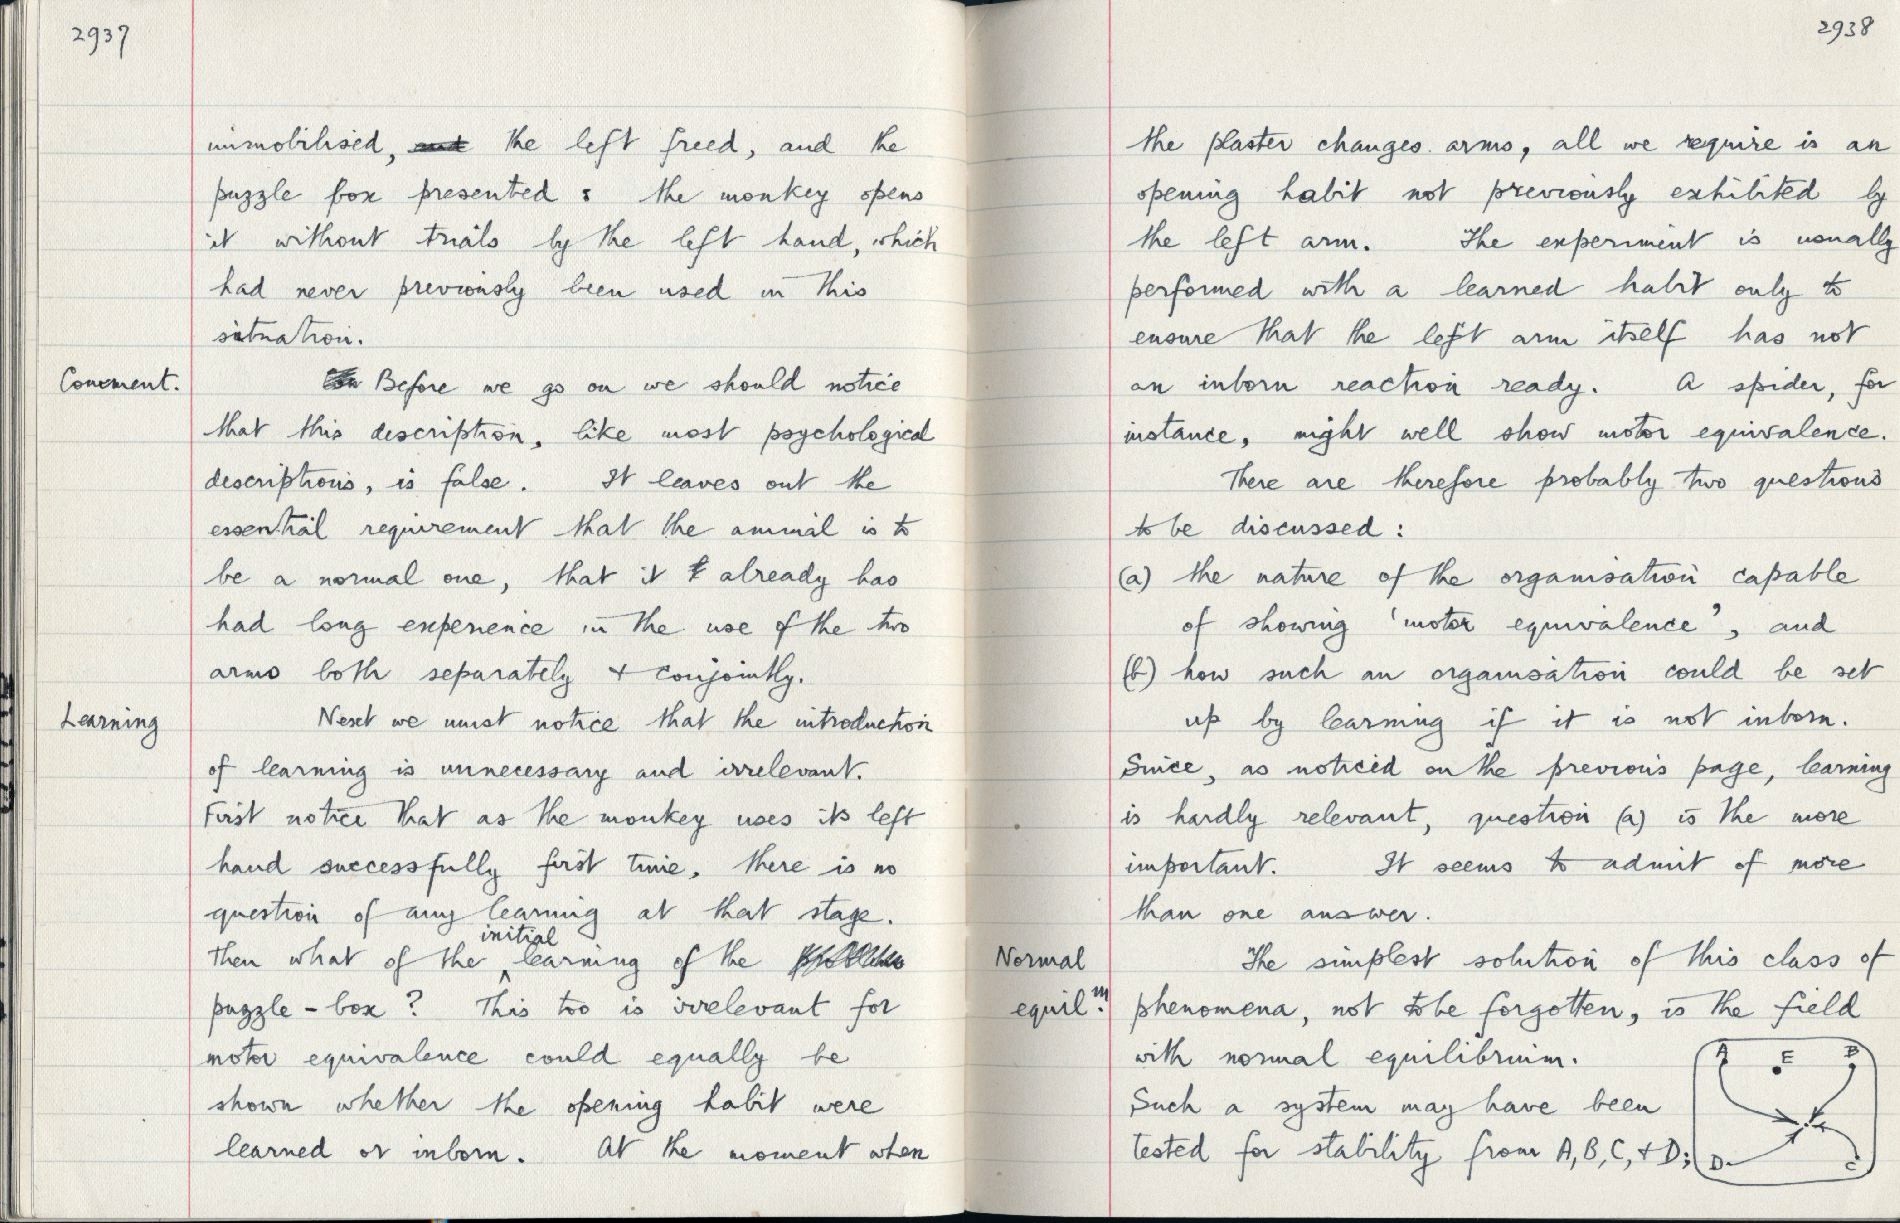 2937
immobilised, the left freed, and the
puzzle box presented : the monkey opens
it without trials by the left hand, which
had never previously been used in this
situation.
Comment.
Before we go on we should notice
that this description, like most psychological
descriptions, is false. It leaves out the
essential requirement that the animal is to
be a normal one, that it already has
had long experience in the use of the two
arms both separately + conjointly.
Learning
Next we must notice that the introduction
of learning is unnecessary and irrelevant.
First notice that as the monkey uses its left
hand successfully first time, there is no
question of any learning at that stage.
initial
Then what of the learning of the
puzzle-box? This too is irrelevant for
motor equivalence could equally be
shown whether the opening habit were
learned or inborn. At the moment when
2938
the plaster changes arms, all we require is an
opening habit not previously exhibited by
the left arm. The experiment is usually
performed with a learned habit only to
ensure that the left arm itself has not
an inborn reaction ready. A spider, for
instance, might well show motor equivalence.
There are therefore probably two questions
to be discussed:
(a) the nature of the organisation capable
of showing 'motor equivalence', and
(b) how such an organisation could be set
up by learning if it is not inborn.
Since, as noticed on the previous page, learning
is hardly relevant, question (a) is the more
important. It seems to admit of more
than one answer.
Normal
equilm.
The simplest solution of this class of
phenomena, not to be forgotten, is the field
with normal equilibrium.
Such a system may have been
tested for stability from A, B, C, + D;
A E B
D C